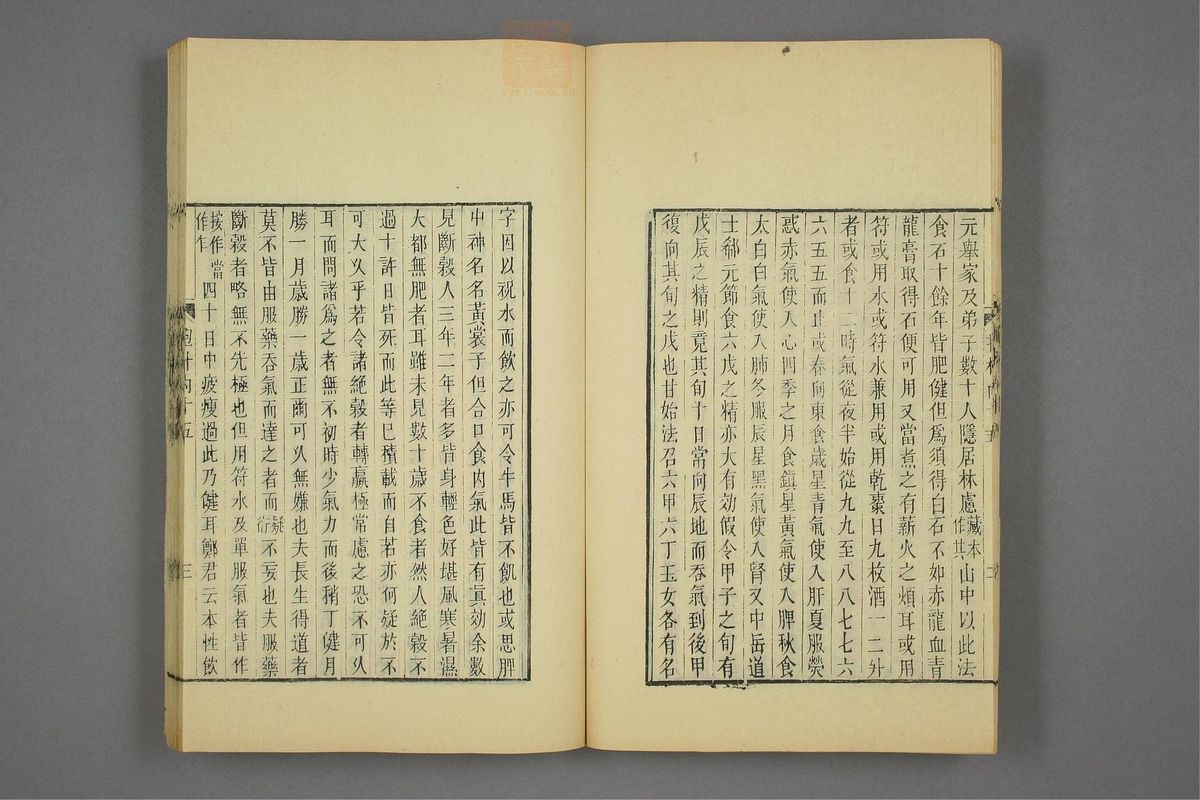 元舉家及弟子數十人隱居林慮藏本作其山中以此法
食石十餘年皆肥健但爲須得白石不如赤龍血青
龍膏取得石便可用又當煮之有薪火之煩耳或用
符或用水或符水兼用或用乾棗日九枚酒一二升
者或食十二時氣從夜半始從九九至八八七七六
六五五而止或春向東食歲星青氣使入肝夏服熒
惑赤氣使入心四季之月食鎮星黃氣使入脾秋食
太白白氣使入肺冬服辰星黑氣使入腎又中岳道
士郗元節食六戊之精亦大有効假令甲子之旬有
戊辰之精則竟其旬十日常向辰地而吞氣到後甲
復向其旬之戊也甘始法召六甲六丁玉女各有名
字因以祝水而飲之亦可令牛馬皆不飢也或思脾
中神名名黃裳子但合口食內氣此皆有真効余數
見斷穀人三年二年者多皆身輕色好堪風寒暑濕
大都無肥者耳雖未見數十歲不食者然人絕穀不
過十許日皆死而此等已積載而自若亦何疑於不
可大乆乎若令諸絕穀者轉羸極常慮之恐不可乆
耳而問諸爲之者無不初時少氣力而後稍丁健月
勝一月歲勝一歲正爾可乆無嫌也夫長生得道者
莫不皆由服藥吞氣而達之者而疑衍不妄也夫服藥
斷穀者略無不先極也但用符水及單服氣者皆作
按作當作乍四十日中疲瘦過此乃健耳鄭君云本性飲
抱朴內十五
三